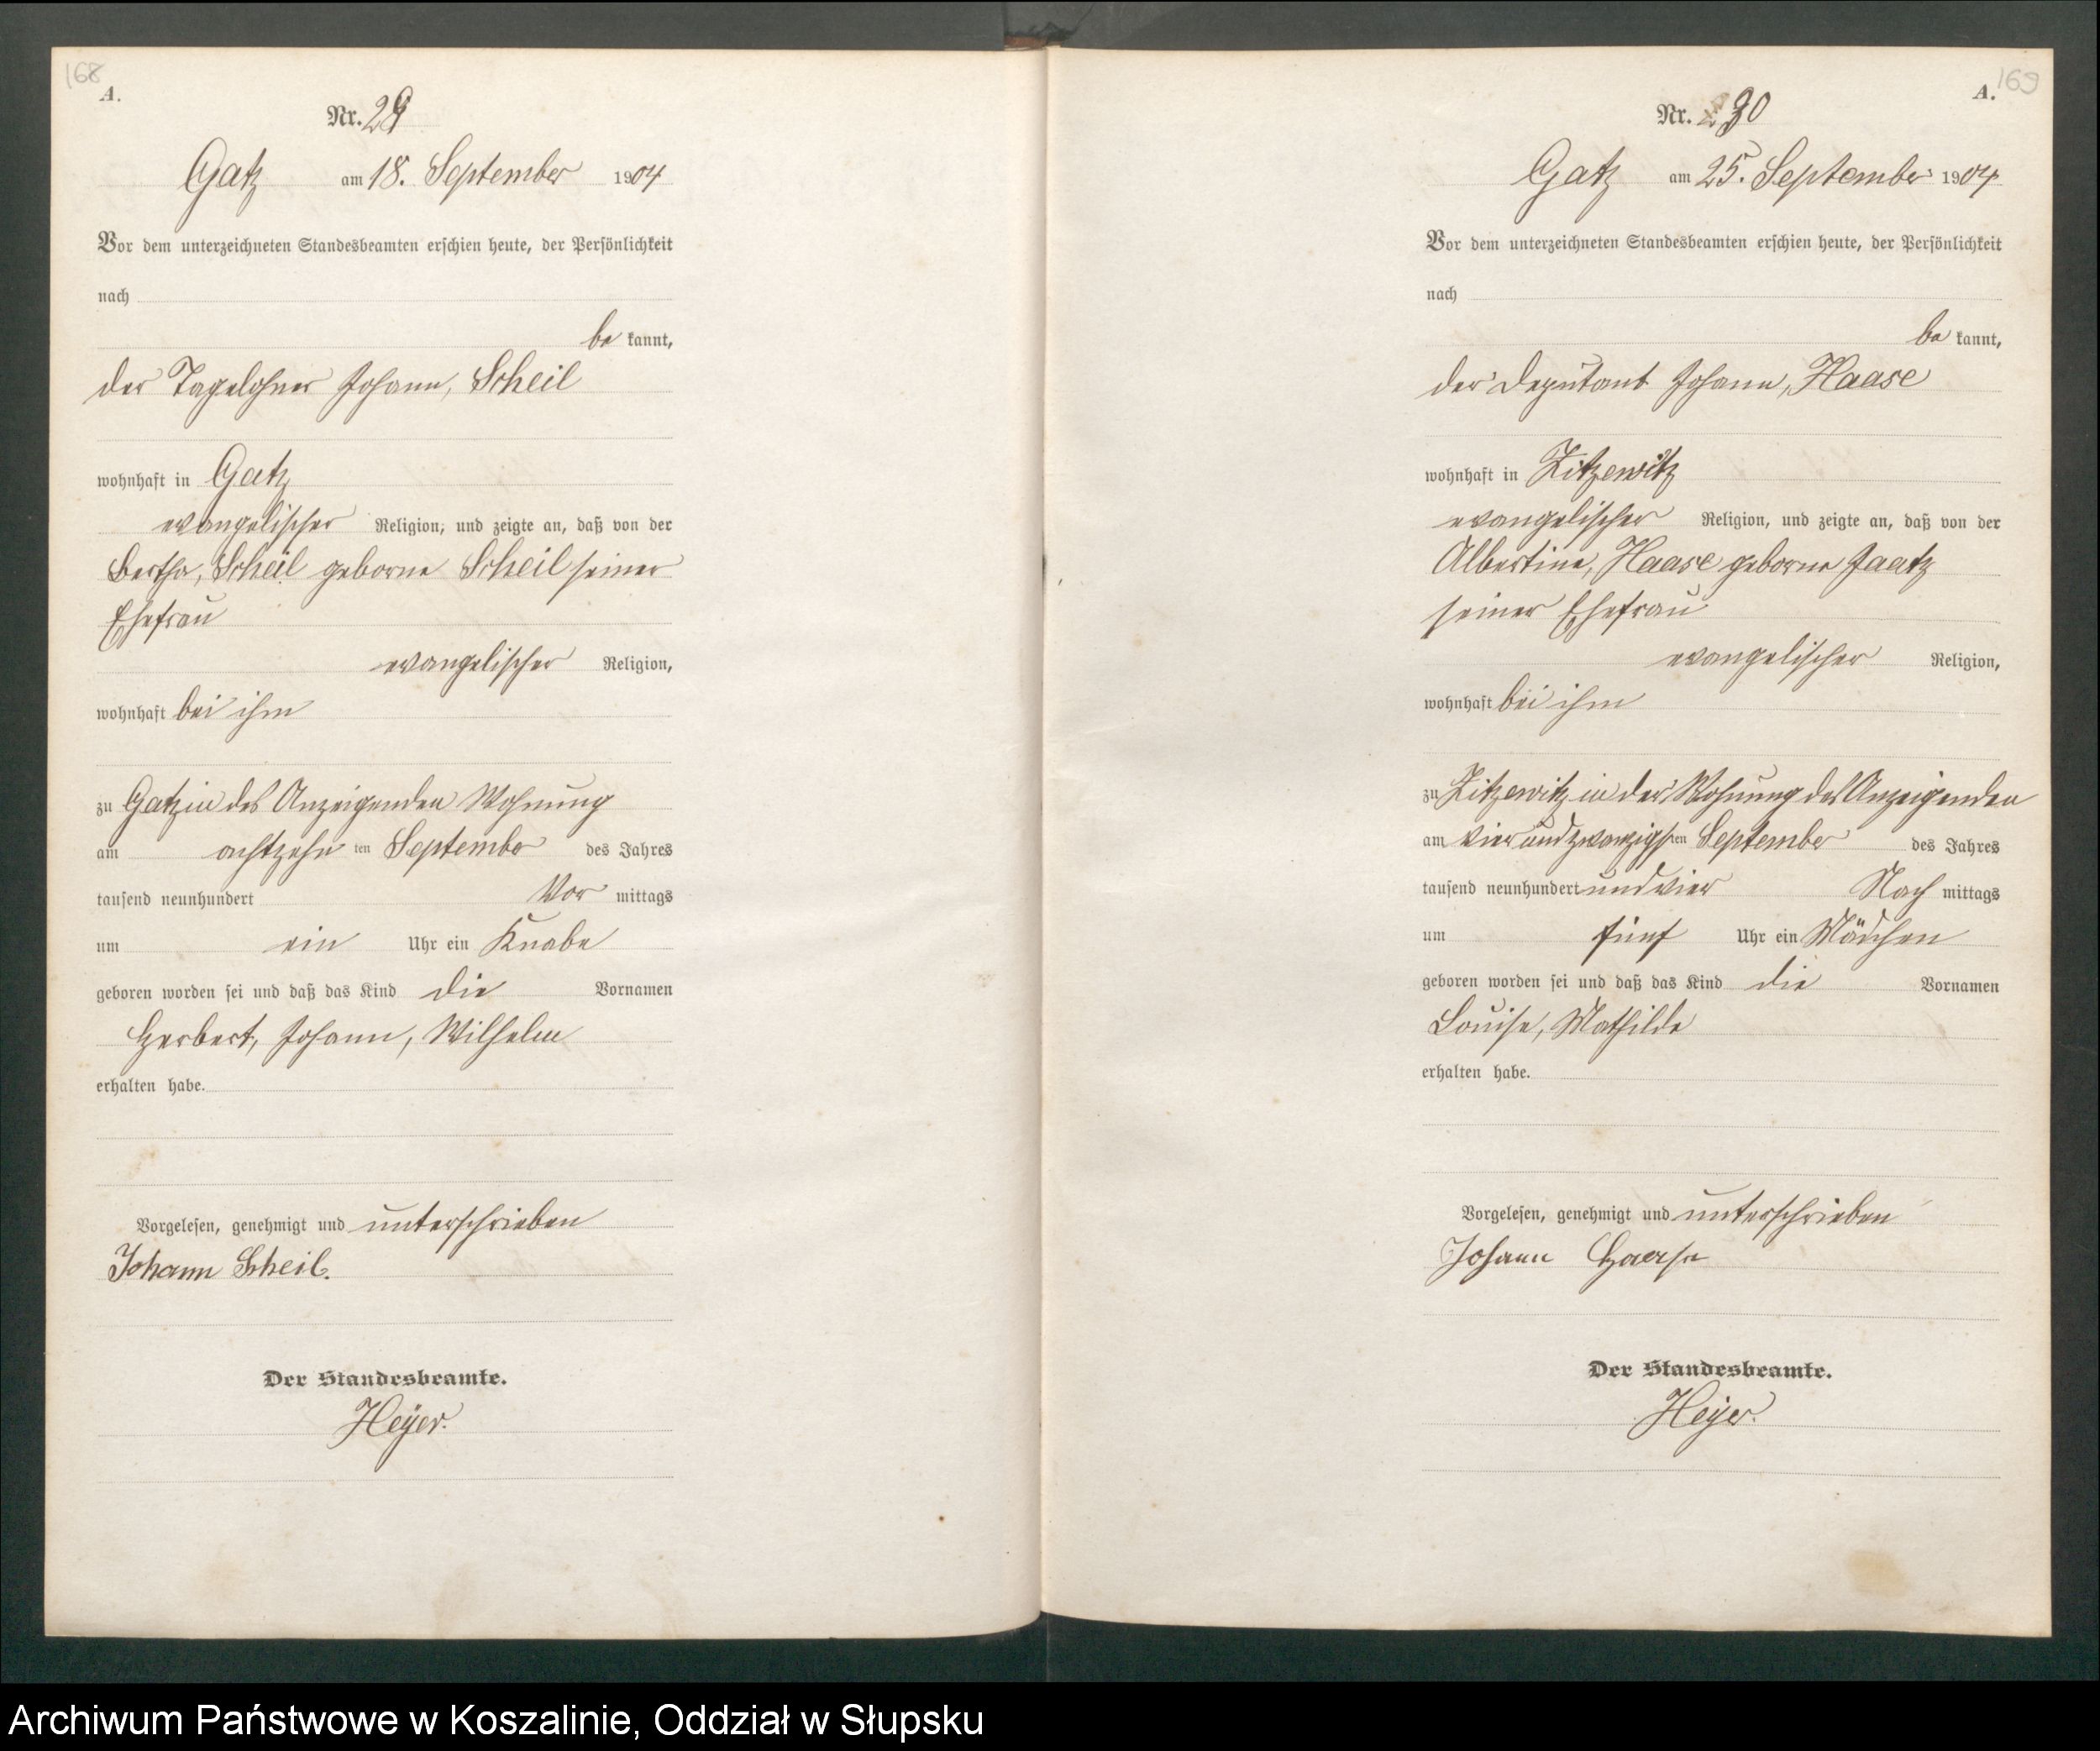 168
A.
Nr. 29
Gatz am 18. September 1904
Vor dem unterzeichneten Standesbeamten erschien heute, der Persönlichkeit
nach
be kannt,
der Tagelöhner Johann, Scheil
wohnhaft in Gatz
evangelischer Religion, und zeigte an, daß von der
Bertha, Scheil geborne Scheil seiner
Ehefrau
evangelischer Religion,
wohnhaft bei ihm
zu Gatz in des Anzeigenden Wohnung
am achtzehn ten September des Jahres
tausend neunhundert Vor mittags
um ein Uhr ein Knabe
geboren worden sei und daß das Kind die Vornamen
Herbert, Johann, Wilhelm
erhalten habe.
Vorgelesen, genehmigt und unterschrieben
Johann Scheil.
Der Standesbeamte.
Heyer.
169
A.
Nr. 30
Gatz am 25. September 1904
Vor dem unterzeichneten Standesbeamten erschien heute, der Persönlichkeit
nach
be kannt,
der Deputant Johann, Haase
wohnhaft in Zitzewitz
evangelischer Religion, und zeigte an, daß von der
Albertine, Haase geborne Jaatz
seiner Ehefrau
evangelischer Religion,
wohnhaft bei ihm
zu Zitzewitz in der Wohnung des Anzeigenden
am vier und zwanzigsten September des Jahres
tausend neunhundert und vier Nach mittags
um fünf Uhr ein Mädchen
geboren worden sei und daß das Kind die Vornamen
Louise, Mathilde
erhalten habe.
Vorgelesen, genehmigt und unterschrieben
Johann Haase
Der Standesbeamte.
Heyer.
Archiwum Państwowe w Koszalinie, Oddział w Słupsku